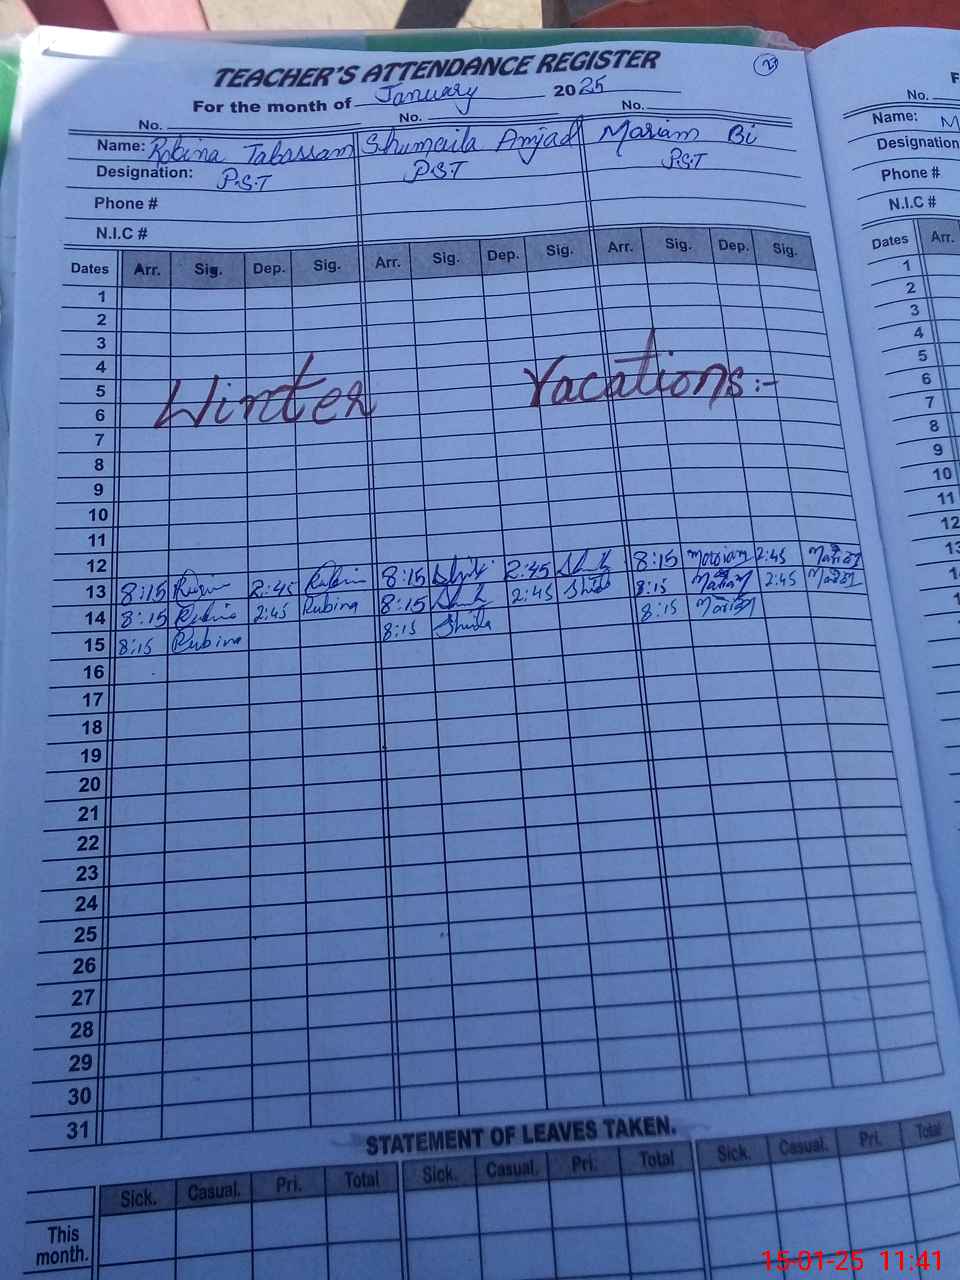 TEACHER'S ATTENDANCE REGISTER
23
For the month of January 2025
No. No. No.
Name: Robina Tabassam Shumaila Amjad Mariam Bi
Designation: P.S.T P.S.T P.S.T
Phone #
N.I.C #
Dates Arr. Sig. Dep. Sig. Arr. Sig. Dep. Sig. Arr. Sig. Dep. Sig.
1
2
3
4
5
Winter Vacations:-
6
7
8
9
10
11
12
13 8:15 2:45 8:15 2:45 8:15 Mariam 2:45
14 8:15 Rubina 2:45 Rubina 8:15 2:45 8:15 2:45
15 8:15 Rubina 8:15 8:15
16
17
18
19
20
21
22
23
24
25
26
27
28
29
30
31
STATEMENT OF LEAVES TAKEN.
Sick. Casual. Pri. Total Sick. Casual. Pri. Total Sick. Casual. Pri. Total
This month.
No.
Name: M
Designation
Phone #
N.I.C #
Dates Arr.
1
2
3
4
5
6
7
8
9
10
11
12
15-01-25 11:41